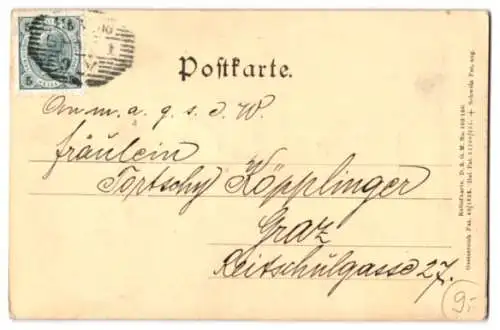 Postkarte.
An m. a. g. s. d. W.
Fräulein
Tortschy Köpplinger
Graz
Reitschulgasse 27.
Reliefkarte. D. R. G. M. No.
Oesterreich Pat. Ital. Pat. + Schweiz Pat. ang.
9.-